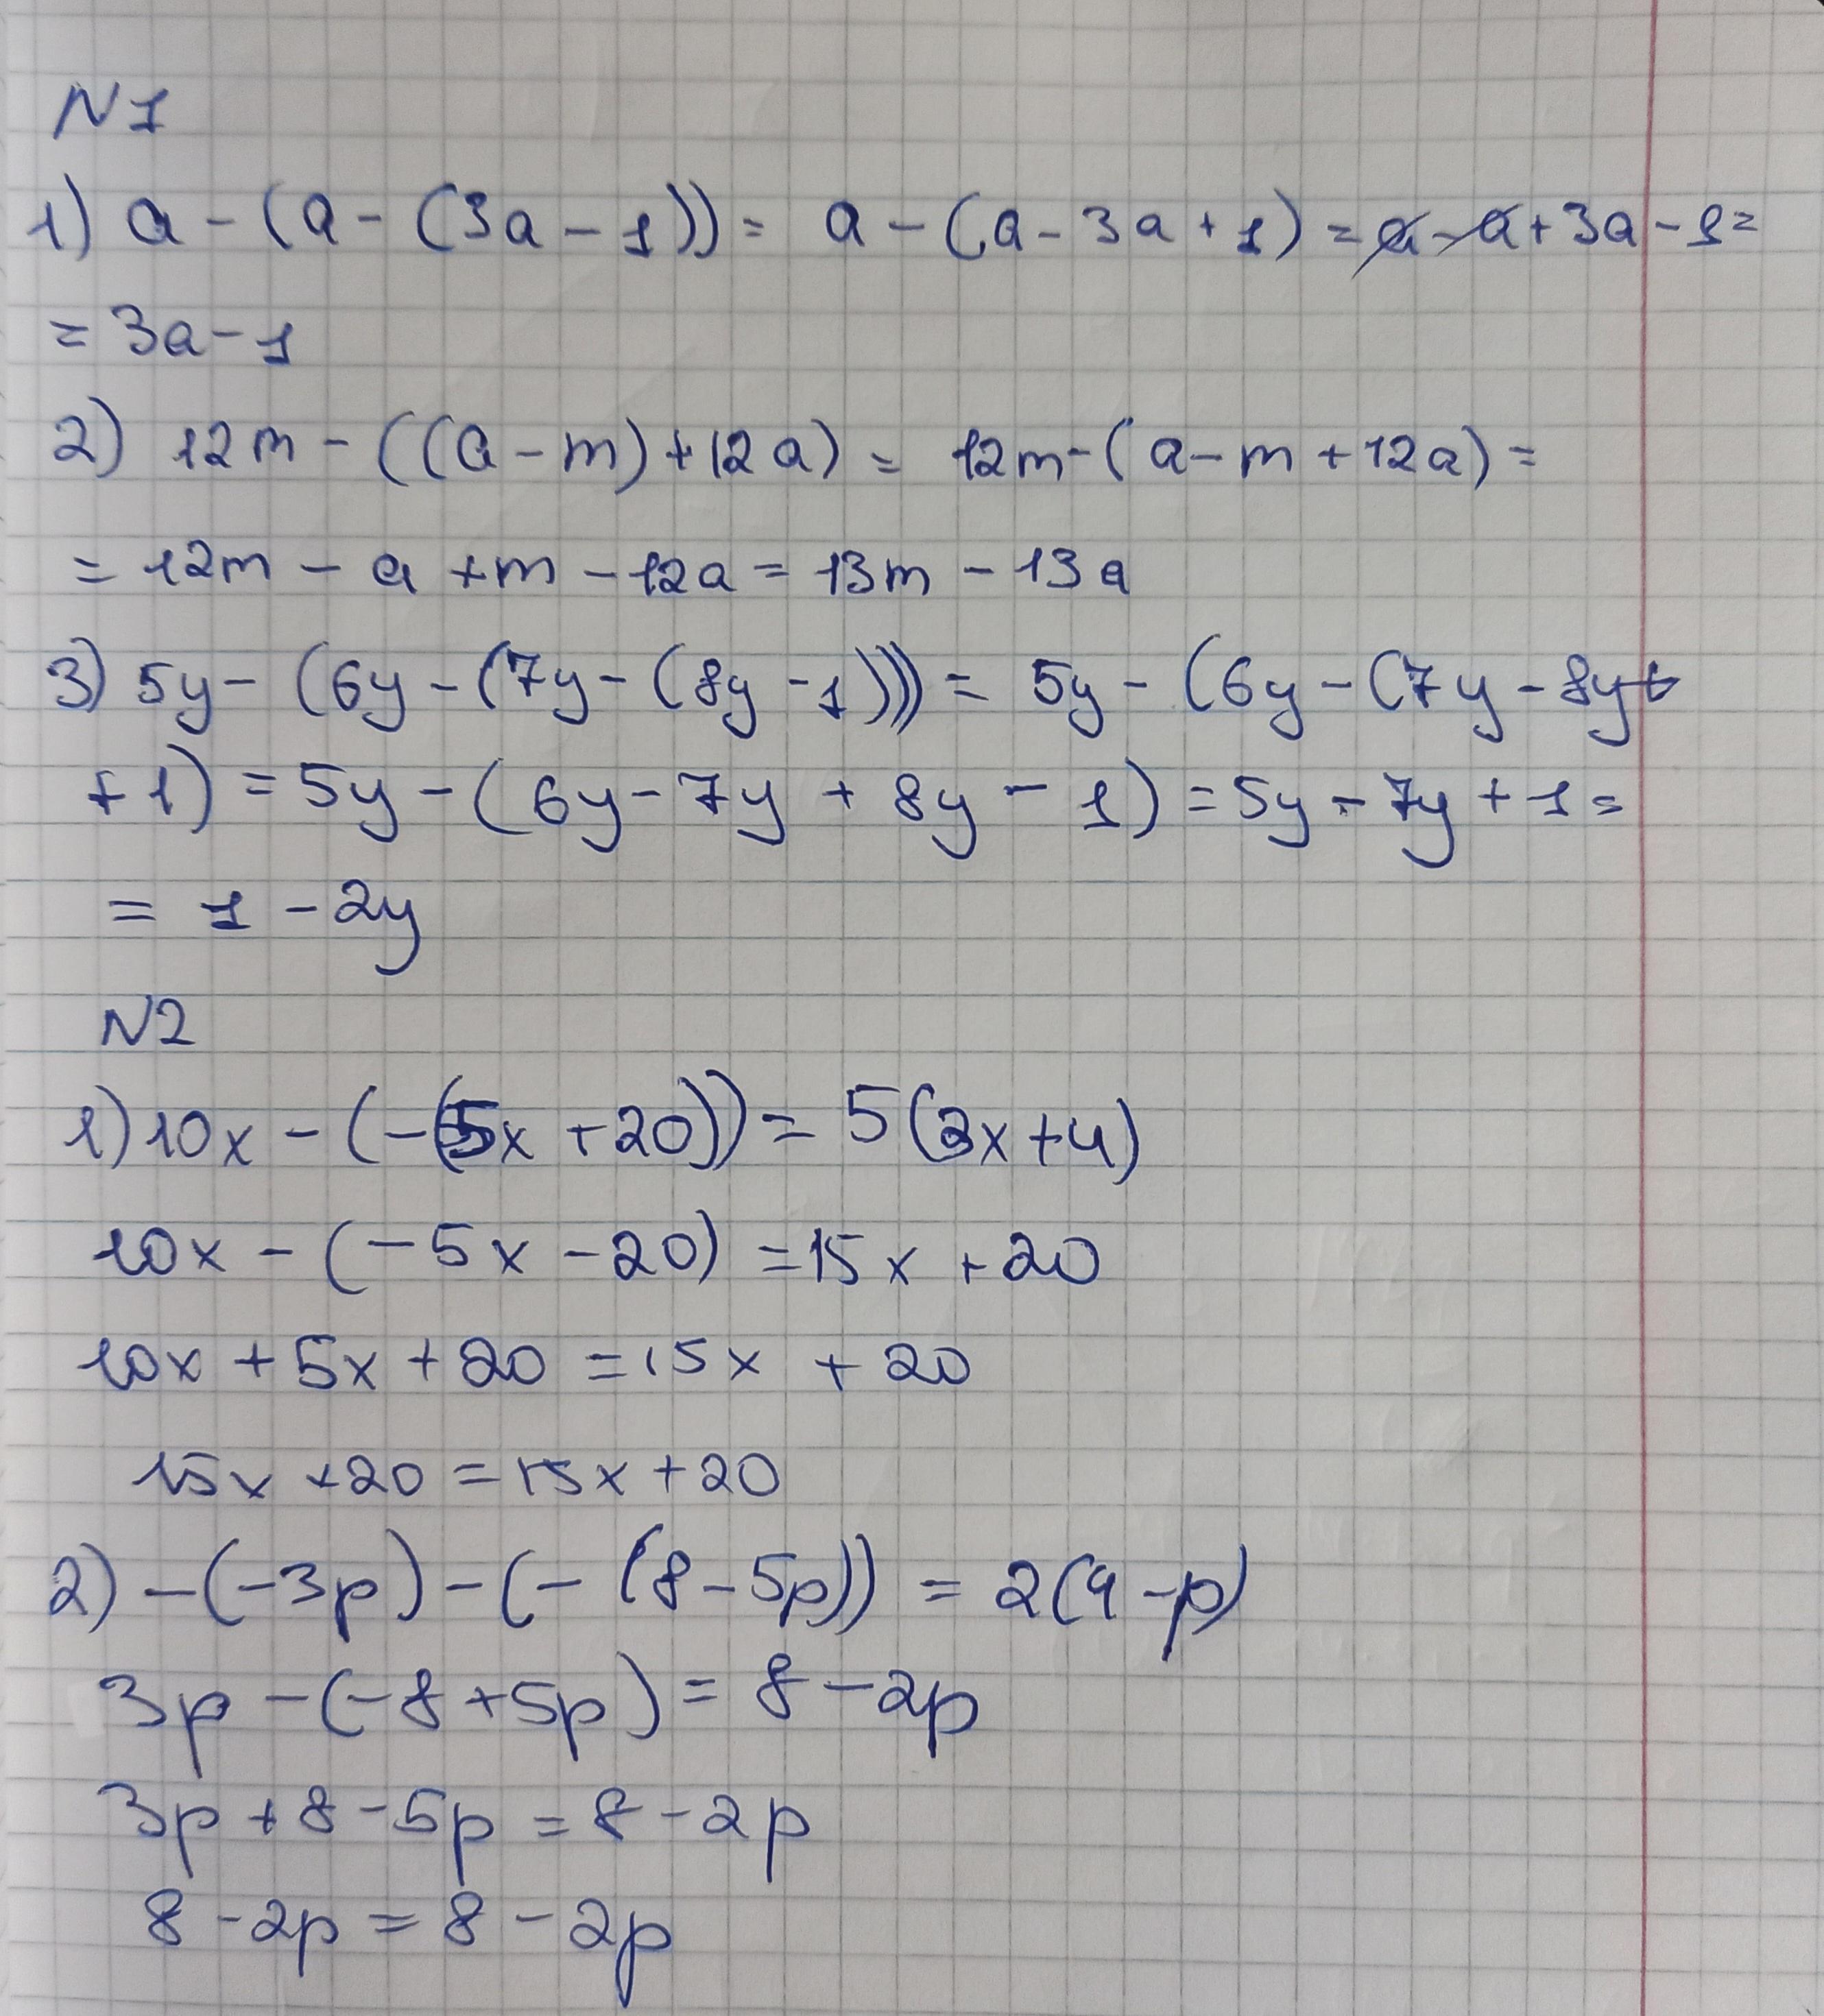 N1
1) a - (a - (3a - 1)) = a - (a - 3a + 1) = a - a + 3a - 1 =
= 3a - 1
2) 12m - ((a - m) + 12a) = 12m - (a - m + 12a) =
= 12m - a + m - 12a = 13m - 13a
3) 5y - (6y - (7y - (8y - 1))) = 5y - (6y - (7y - 8y +
+ 1) = 5y - (6y - 7y + 8y - 1) = 5y - 7y + 1 =
= 1 - 2y
N2
1) 10x - (-(5x + 20)) = 5(3x + 4)
10x - (-5x - 20) = 15x + 20
10x + 5x + 20 = 15x + 20
15x + 20 = 15x + 20
2) -(-3p) - (-(8 - 5p)) = 2(4 - p)
3p - (-8 + 5p) = 8 - 2p
3p + 8 - 5p = 8 - 2p
8 - 2p = 8 - 2p